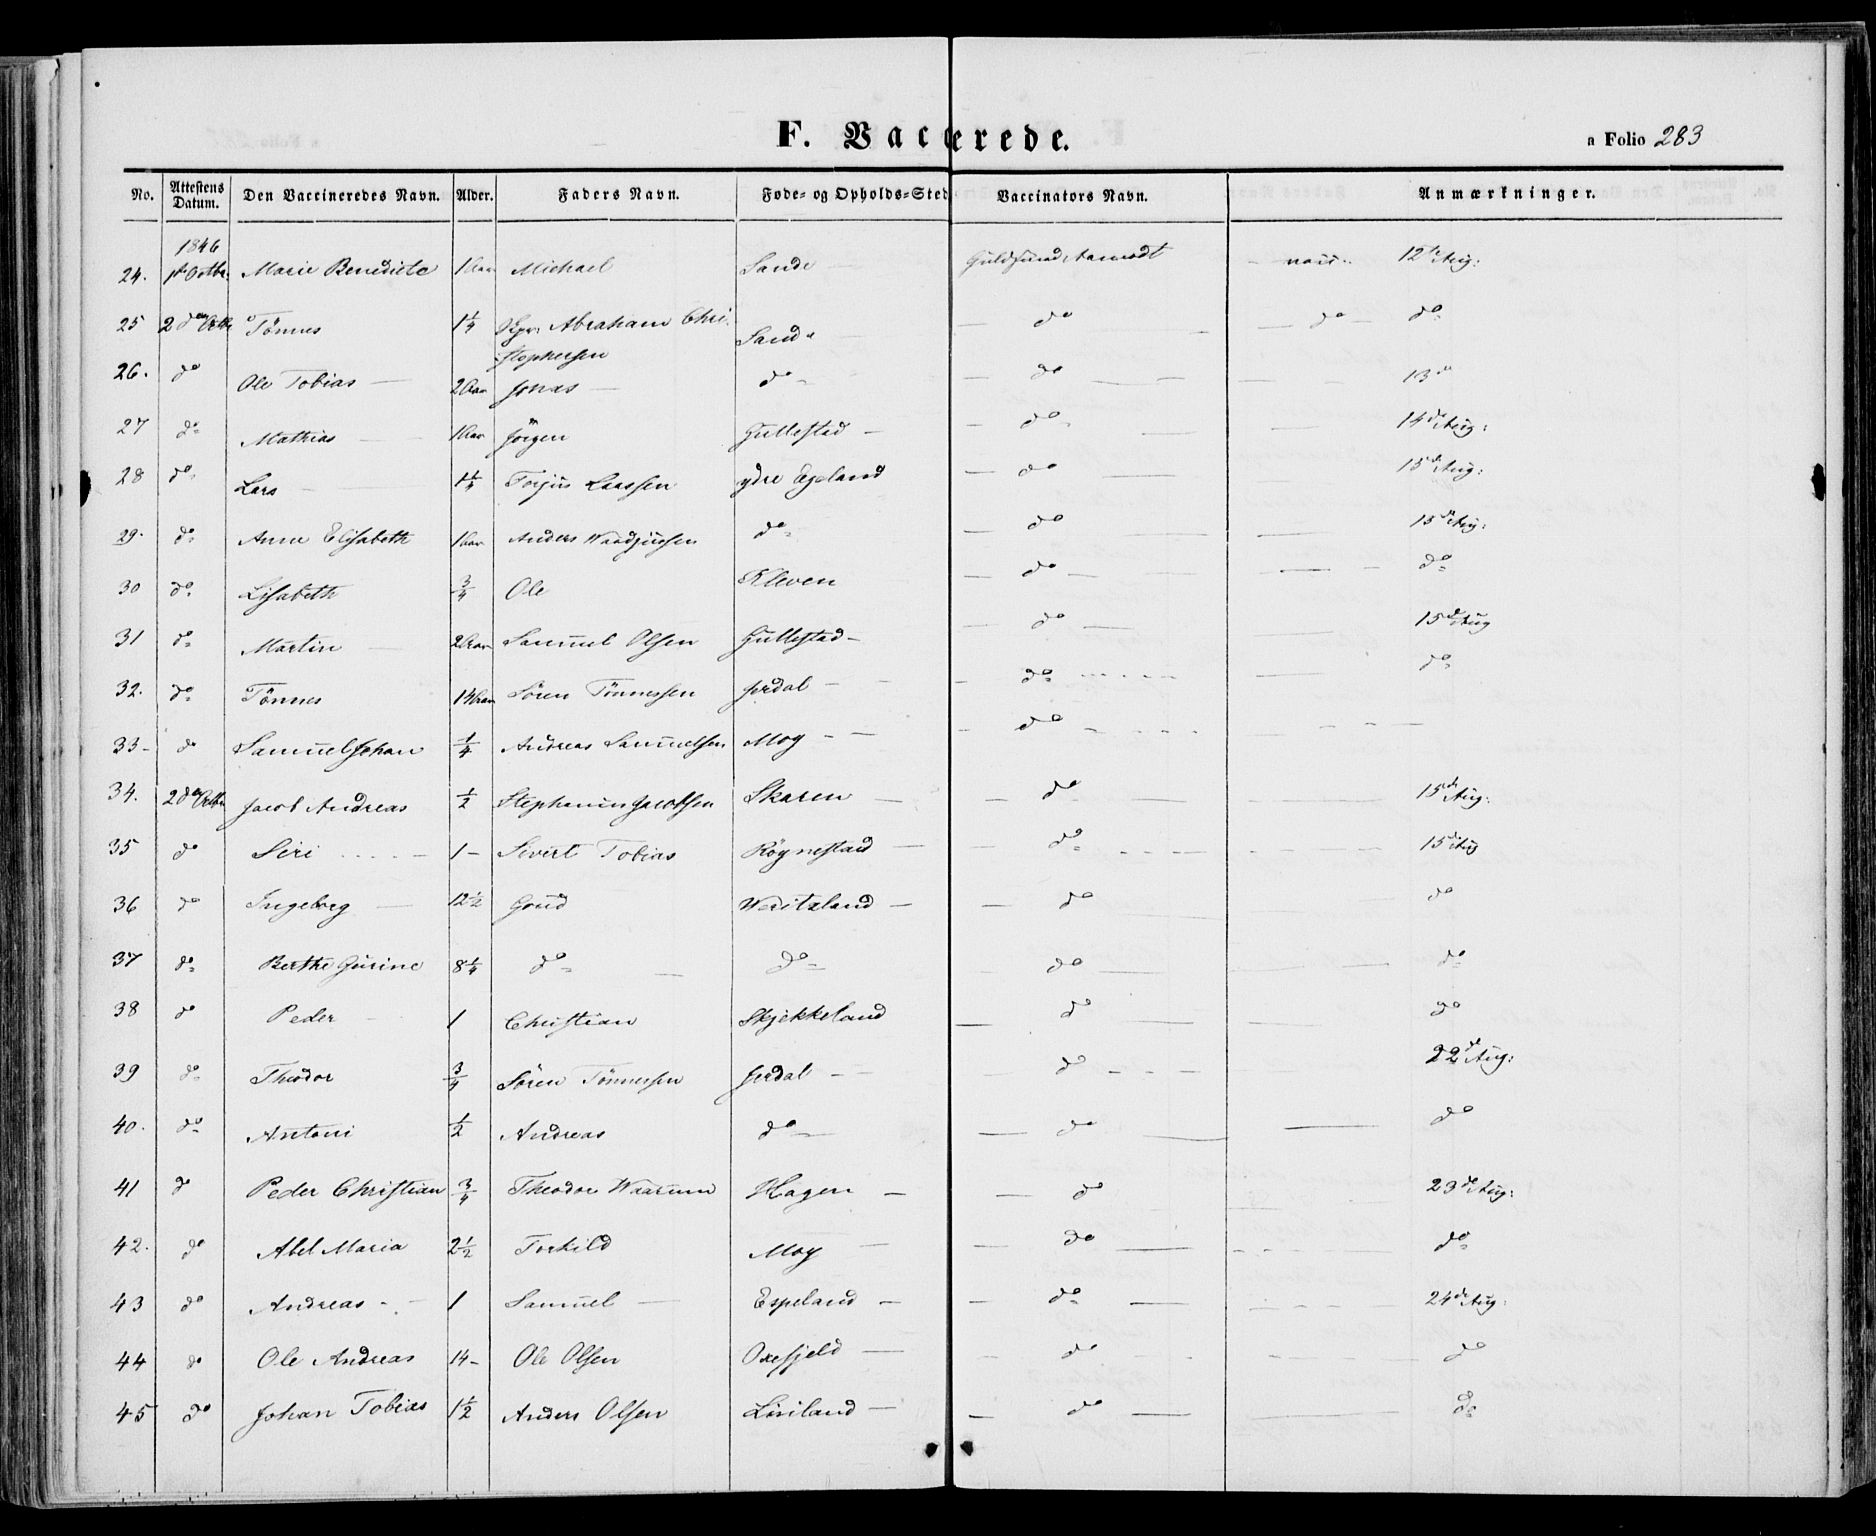 F. Vaccerede.
a Folio 283
No. Attestens Datum. Den Vaccineredes Navn. Alder. Faders Navn. Føde- og Opholds-Sted Vaccinators Navn. Anmærkninger.
1846
24. 1ste Octbr. Marie Benedicte 1 Aar Michael Sande 12te Aug:
25 2den Octbr Tönnes 1 1/4 Abraham Chri- Sande do do do
stophersen
26. do Ole Tobias 2 Aar Jonas do do 13de
27 do Mathias 1 Aar Jörgen Gullestad do 14de Aug:
28 do Lars 1 1/4 Torjus Larssen ydre Egeland do 15de Aug:
29. do Anne Elisabeth 1 Aar Anders do do 15de Aug:
30 do Lisabeth 3/4 Ole Kleven do do
31 do Martin 2 Aar Samuel Olsen Gullestad do 15de Aug
32. do Tönnes 14 Aar Sören Tönnessen Jerdal do do
33 do Samuel Johan 1/4 Andreas Samuelsen Moy do
34. 2den Octbr Jacob Andreas 1/2 Jacobsen Skaren do 15de Aug:
35 do Siri 1 Sivert Tobias Rögnestad do 15de Aug
36 do Ingeborg 12 1/2 Gund do do
37 do Berthe Gurine 8 1/4 do do do do
38 do Peder 1 Christian Skjekkeland do do
39 do Theodor 3/4 Sören Tönnessen Jerdal do 22de Aug:
40. do Antoni 1/2 Andreas do do do
41 do Peder Christian 3/4 Theodor Waarum Hagen do 23de Aug:
42. do Abel Maria 2 1/2 Torkild Moy do do
43 do Andreas 1 Samuel Espeland do 24de Aug:
44 do Ole Andreas 14 Ole Olsen Oxefjeld do do
45 do Johan Tobias 1 1/2 Anders Olsen do do